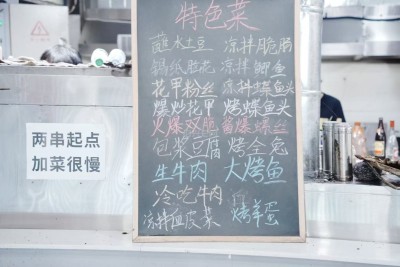 特色菜
蘸水土豆 凉拌脆肠
锡纸脑花 凉拌鲫鱼
花甲粉丝 凉拌鲽鱼头
爆炒花甲 烤鲽鱼头
火爆双脆
包浆豆腐 烤全兔
生牛肉 大烤鱼
冷吃牛肉
凉拌血皮菜 烤羊蛋
两串起点
加菜很慢